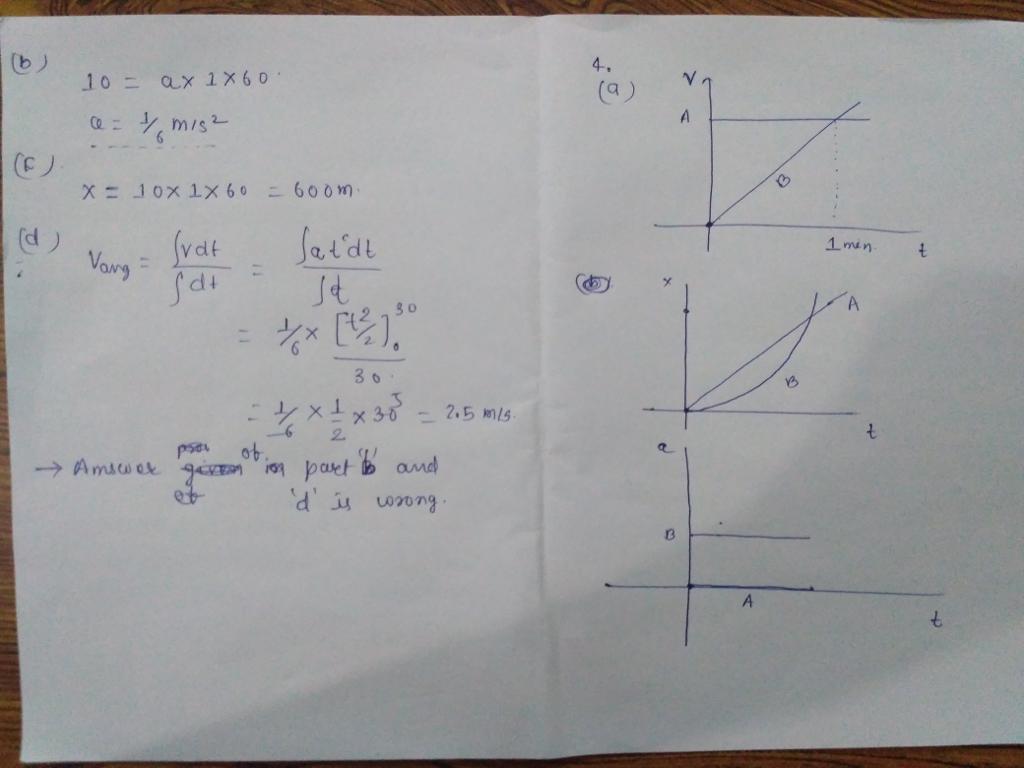 (b)
10 = a x 1 x 60
a = 1/6 m/s²
(c)
x = 10 x 1 x 60 = 600m.
(d)
Vavg = ∫vdt / ∫dt = ∫at dt / ∫t
= 1/6 x [t²/2]₀³⁰ / 30
= 1/6 x 1/2 x 30⁵ = 2.5 m/s.
→ Answer of in part 'b' and
'd' is wrong.
4.
(a)
V
A
B
1 min.
t
(b)
x
A
B
t
a
B
A
t